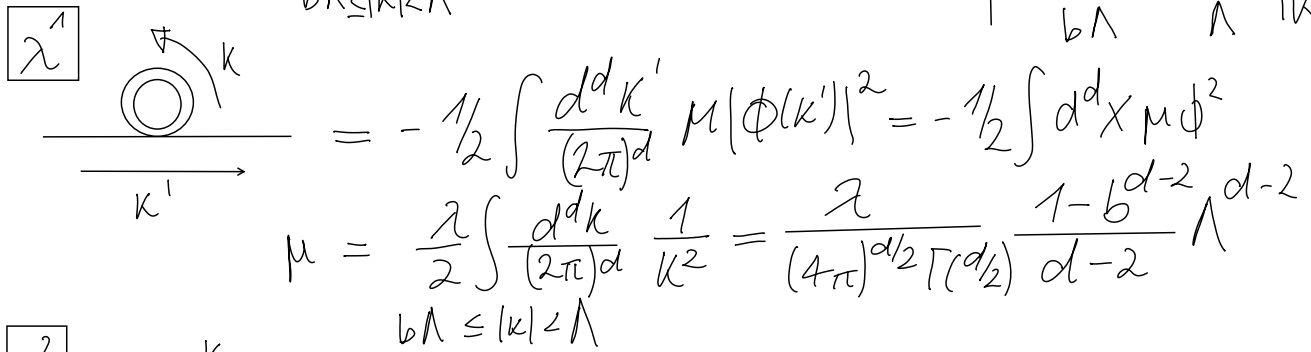 bΛ≤|k|<Λ
bΛ Λ |k
λ¹
k
k'
= - 1/2 ∫ d^d k'/(2π)^d μ|ϕ(k')|² = - 1/2 ∫ d^d x μϕ²
μ = λ/2 ∫ d^d k/(2π)^d 1/k² = λ/((4π)^{d/2} Γ(d/2)) (1-b^{d-2})/(d-2) Λ^{d-2}
bΛ ≤ |k| < Λ
2
k